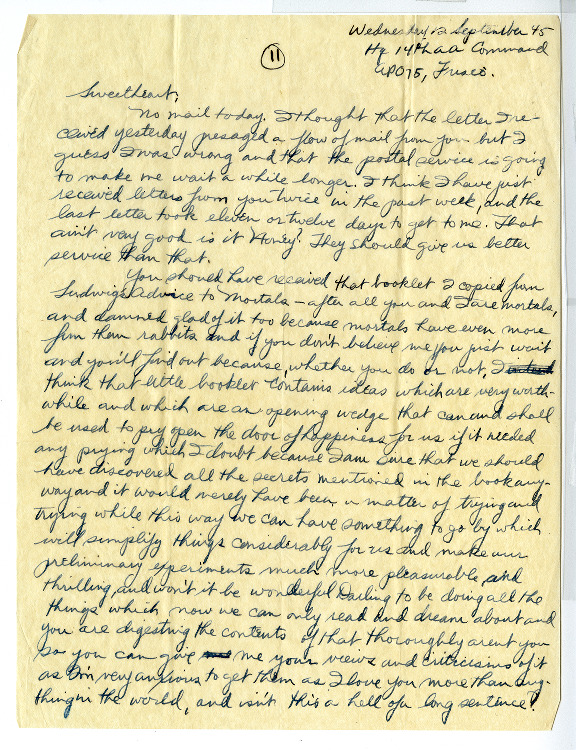 Wednesday 12 September 45
Hq 14th AA Command
APO 75, Frisco.
11
Sweetheart,
No mail today. I thought that the letter I re-
ceived yesterday presaged a flow of mail from you but I
guess I was wrong and that the postal service is going
to make me wait a while longer. I think I have just
received letters from you twice in the past week, and the
last letter took eleven or twelve days to get to me. That
ain't very good is it Honey? They should give us better
service than that.
You should have received that booklet I copied from
Ludwigs Advice to Mortals - after all you and I are mortals,
and damned glad of it too because mortals have even more
fun them rabbits and if you don't believe me you just wait
and you'll find out because, whether you do or not, I
think that little booklet contains ideas which are very worth-
while and which are an opening wedge that can and shall
be used to pry open the door of happiness for us if it needed
any prying which I doubt because I am sure that we should
have discovered all the secrets mentioned in the book any-
way and it would merely have been a matter of trying and
trying while this way we can have something to go by which
will simplify things considerably for us and make our
preliminary experiments much more pleasurable, and
thrilling, and won't it be wonderful Darling to be doing all the
things which now we can only read and dream about and
you are digesting the contents of that thoroughly arent you
so you can give me your views and criticisms of it
as I'm very anxious to get them as I love you more than any-
thing in the world, and isn't this a hell of a long sentence?